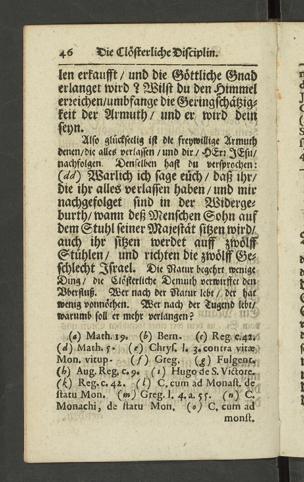 46 Die Clösterliche Disciplin.
len erkaufft / und die Göttliche Gnad
erlanget wird ? Wilst du den Himmel
erreichen / umbfange die Geringschätzig-
keit der Armuth / und er wird dein
seyn.
Also glückseelig ist die freywillige Armuth
denen / die alles verlassen / und dir / HErr JEsu /
nachfolgen. Denselben hast du versprochen:
(dd) Warlich ich sage euch / daß ihr /
die ihr alles verlassen haben / und mir
nachgefolget sind in der Widerge-
burth / wann deß Menschen Sohn auf
dem Stuhl seiner Majestät sitzen wird /
auch ihr sitzen werdet auff zwölff
Stühlen / und richten die zwölff Ge-
schlecht Israel. Die Natur begehrt wenige
Ding / die Clösterliche Demuth verwirffet den
Uberfluß. Wer nach der Natur lebt / der hat
wenig vonnöthen. Wer nach der Tugend lebt /
warumb soll er mehr verlangen ?
(a) Math. 19. (b) Bern. (c) Reg c. 42.
(d) Math. 5. (e) Chrys. l. 3. contra vitæ
Mon. vitup. (f) Greg. (g) Fulgent.
(h) Aug. Reg, c. 9. (i) Hugo de S. Victore.
(k) Reg. c. 42. (l) C. cum ad Monast. de
statu Mon. (m) Greg. l. 4. a. 55. (n) C.
Monachi, de statu Mon. (o) C. cum ad
monst.